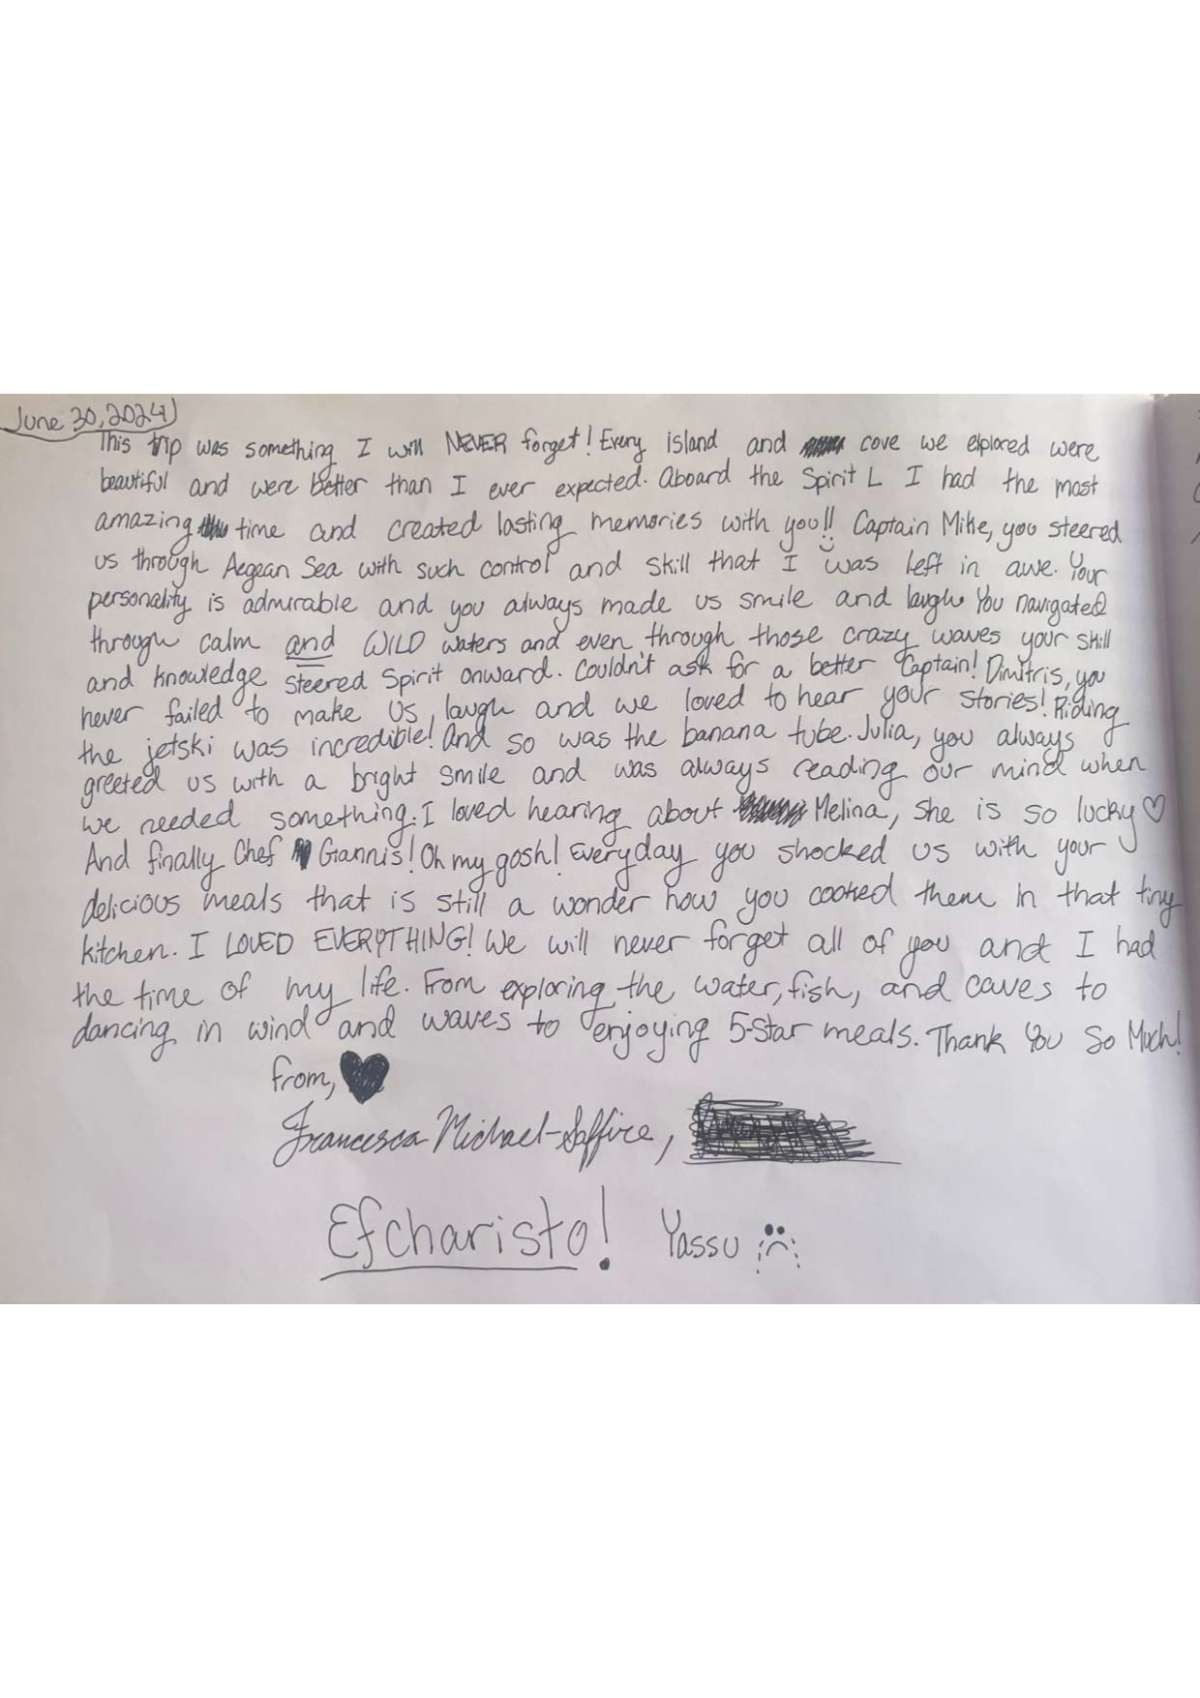 June 30, 2024
This trip was something I will NEVER forget! Every island and cove we explored were
beautiful and were better than I ever expected. Aboard the Spirit L I had the most
amazing time and created lasting memories with you!!  Captain Mike, you steered
us through Aegean Sea with such control and skill that I was left in awe. Your
personality is admirable and you always made us smile and laugh. You navigated
through calm and WILD waters and even through those crazy waves your skill
and knowledge steered Spirit onward. Couldn't ask for a better Captain! Dimitris, you
never failed to make us laugh and we loved to hear your stories! Riding
the jetski was incredible! And so was the banana tube. Julia, you always
greeted us with a bright smile and was always reading our mind when
we needed something. I loved hearing about Melina, she is so lucky ♡
And finally Chef Giannis! Oh my gosh! Everyday you shocked us with your
delicious meals that is still a wonder how you cooked them in that tiny
kitchen. I LOVED EVERYTHING! We will never forget all of you and I had
the time of my life. From exploring the water, fish, and caves to
dancing in wind and waves to enjoying 5-star meals. Thank You So Much!
from, ♥
Francesca Michael-Saffire,
Efcharisto! Yassu